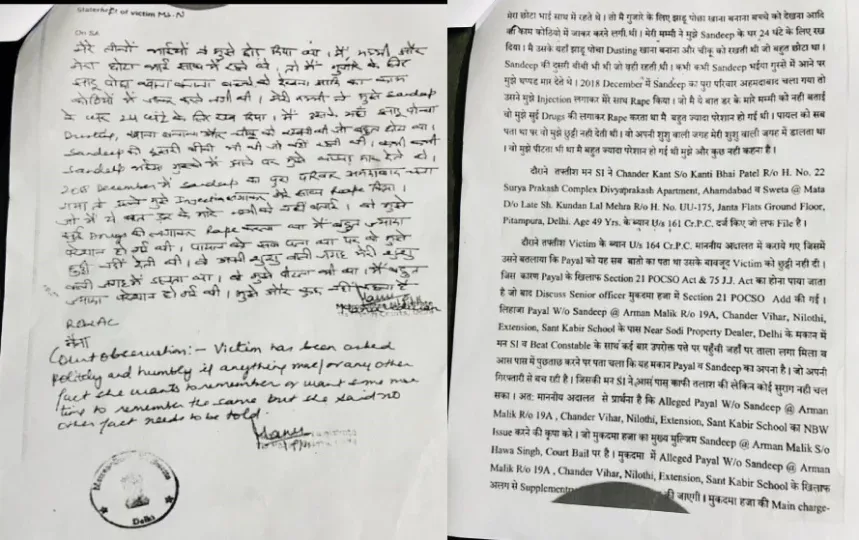 Statement of victim Ms. N
On SA
मेरे छोटा भाई साथ में रहते थे। तो मैं गुजारे के लिए
झाडू पोछा खाना बनाना बच्चे को देखना आदि का काम
कोठियों में जाकर करने लगी थी। मेरी मम्मी ने मुझे Sandeep
के घर 24 घंटे के लिए रख दिया। मैं उसके यहाँ झाडू पोछा
Dusting, खाना बनाना और चीकू को रखती थी जो बहुत छोटा था।
Sandeep की दूसरी बीवी भी थी जो वहीं रहती थी। कभी कभी
Sandeep भईया गुस्से में आने पर मुझे थप्पड़ मार देते थे।
2018 December में Sandeep का पूरा परिवार अहमदाबाद चला
गया तो उसने मुझे Injection लगाकर मेरे साथ Rape किया।
जो मैं ये बात डर के मारे मम्मी को नहीं बताई। वो मुझे
सुई Drugs की लगाकर Rape करता था मैं बहुत ज्यादा
परेशान हो गई थी। पायल को सब पता था पर वो मुझे
छुट्टी नहीं देती थी। वो अपनी शुशु वाली जगह मेरी शुशु
वाली जगह में डालता था। वो मुझे पीटता भी था। मैं बहुत
ज्यादा परेशान हो गई थी। मुझे और कुछ नहीं कहना है
RO&AC
Court observation:- Victim has been asked
politely and humbly if anything more/or any other
fact she wants to remember or want some more
time to remember the same but she said no
other fact needs to be told.
Delhi
मेरा छोटा भाई साथ में रहते थे। तो मै गुजारे के लिए झाडू पोछा खाना बनाना बच्चे को देखना आदि
का काम कोठियों में जाकर करने लगी थी। मेरी मम्मी ने मुझे Sandeep के घर 24 घंटे के लिए रख
दिया। मै उसके यहाँ झाडू पोछा Dusting खाना बनाना और चीकू को रखती थी जो बहुत छोटा था।
Sandeep की दूसरी बीवी भी थी जो वही रहती थी। कभी कभी Sandeep भईया गुस्से में आने पर
मुझे थप्पड़ मार देते थे। 2018 December में Sandeep का पुरा परिवार अहमदाबाद चला गया तो
उसने मुझे Injection लगाकर मेरे साथ Rape किया। जो मै ये बात डर के मारे मम्मी को नही बताई
वो मुझे सुई Drugs की लगाकर Rape करता था मै बहुत ज्यादा परेशान हो गई थी। पायल को सब
पता था पर वो मुझे छुट्टी नही देती थी। वो अपनी शुशु वाली जगह मेरी शुशु वाली जगह में डालता था
। वो मुझे पीटता भी था मै बहुत ज्यादा परेशान हो गई थी मुझे और कुछ नही कहना है।
दौराने तफ्तीश मन SI ने Chander Kant S/o Kanti Bhai Patel R/o H. No. 22
Surya Prakash Complex Divyaprakash Apartment, Ahamdabad व Sweta @ Mata
D/o Late Sh. Kundan Lal Mehra R/o H. No. UU-175, Janta Flats Ground Floor,
Pitampura, Delhi. Age 49 Yrs. के ब्यान U/s 161 Cr.P.C. दर्ज किए जो लफ File है।
दौराने तफ्तीश Victim के ब्यान U/s 164 Cr.P.C. माननीय अदालत में कराये गए जिसमें
उसने बतलाया कि Payal को यह सब बातो का पता था उसके बावजूद Victim को छुट्टी नही दी।
जिस कारण Payal के खिलाफ Section 21 POCSO Act & 75 J.J. Act का होना पाया जाता
है जो बाद Discuss Senior officer मुकदमा हजा में Section 21 POCSO Add की गई।
लिहाजा Payal W/o Sandeep @ Arman Malik R/o 19A, Chander Vihar, Nilothi,
Extension, Sant Kabir School के पास Near Sodi Property Dealer, Delhi के मकान में
मन SI व Beat Constable के साथ कई बार उपरोक्त पते पर पहुँची जहाँ पर ताला लगा मिला व
आस पास में पुछताछ करने पर पता चला कि यह मकान Payal व Sandeep का अपना है। जो अपनी
गिरफ्तारी से बच रही है। जिसकी मन SI ने आस पास काफी तलाश की लेकिन कोई सुराग नही चल
सका। अत: माननीय अदालत से प्रार्थना है कि Alleged Payal W/o Sandeep @ Arman
Malik R/o 19A , Chander Vihar, Nilothi, Extension, Sant Kabir School का NBW
Issue करने की कृपा करे। जो मुकदमा हजा का मुख्य मुल्जिम Sandeep @ Arman Malik S/o
Hawa Singh, Court Bail पर है। मुकदमा में Alleged Payal W/o Sandeep @ Arman
Malik R/o 19A , Chander Vihar, Nilothi, Extension, Sant Kabir School के खिलाफ
अलग से Supplement की जाएगी। मुकदमा हजा की Main charge-